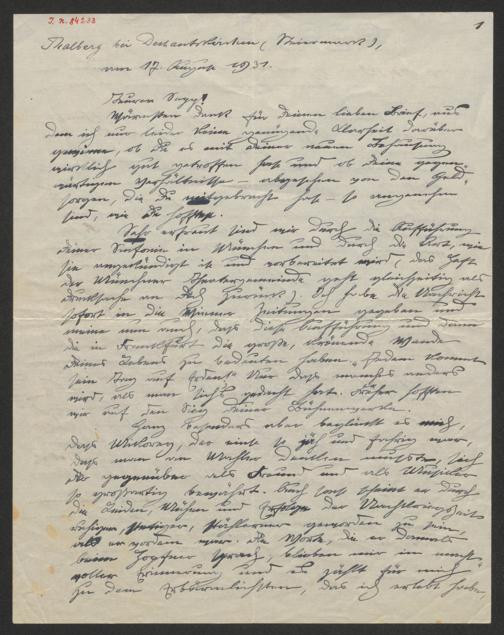 I. N. 84233
1
Thalberg bei Dechantskirchen (Steiermark),
am 17. August 1931.
Teurer Sepp!
Wärmsten Dank für Deinen lieben Brief, aus
dem ich nur leider keine genügende Klarheit darüber
gewinne, ob Du es mit Deiner neuen Behausung
wirklich gut getroffen hast und ob Deine gegen-
wärtigen Verhältnisse – abgesehen von den Geld-
sorgen, die Du mitgebracht hast – so angenehm
sind, wie Du hofftest.
Sehr erfreut sind wir durch die Aufführung
Deiner Sinfonie in München und durch die Art, wie
sie angekündigt ist und vorbereitet wird, das Heft
der Münchner Theatergemeinde geht gleichzeitig als
Drucksache an Dich zurück). Ich habe die Nachricht
sofort in die Wiener Zeitungen gegeben und
meine nun auch, daß diese Aufführung und dann
die in Frankfurt die große, krönende Wende
Deines Lebens zu bedeuten haben. "Jedem kommt
sein Tag auf Erden." Nur daß manches anders
wird, als man sich's gedacht hat. Früher hofften
wir auf den Sieg Deiner Bühnenwerke.
Ganz besonders aber beglückt es mich,
daß, der einst so jäh und fahrig war,
daß man an Walter denken mußte, sich
Dir gegenüber als Freund und als Musiker
so großartig bewährt. Auch sonst scheint er durch
die Leiden, Mühen und Erfolge der Nachkriegszeit
ruhiger, stetiger, stählerner geworden zu sein,
als er vordem war. Die Worte, die er damals
beim sprach, blieben mir in macht-
voller Erinnerung und es zählt für mich
zu dem Erbärmlichsten, das ich erlebt habe